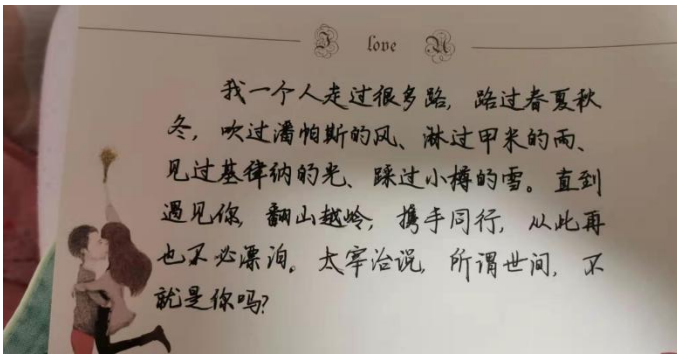 I love U
我一个人走过很多路，路过春夏秋
冬，吹过潘帕斯的风、淋过甲米的雨、
见过基律纳的光、踩过小樽的雪。直到
遇见你，翻山越岭，携手同行，从此再
也不必漂泊。太宰治说，所谓世间，不
就是你吗？